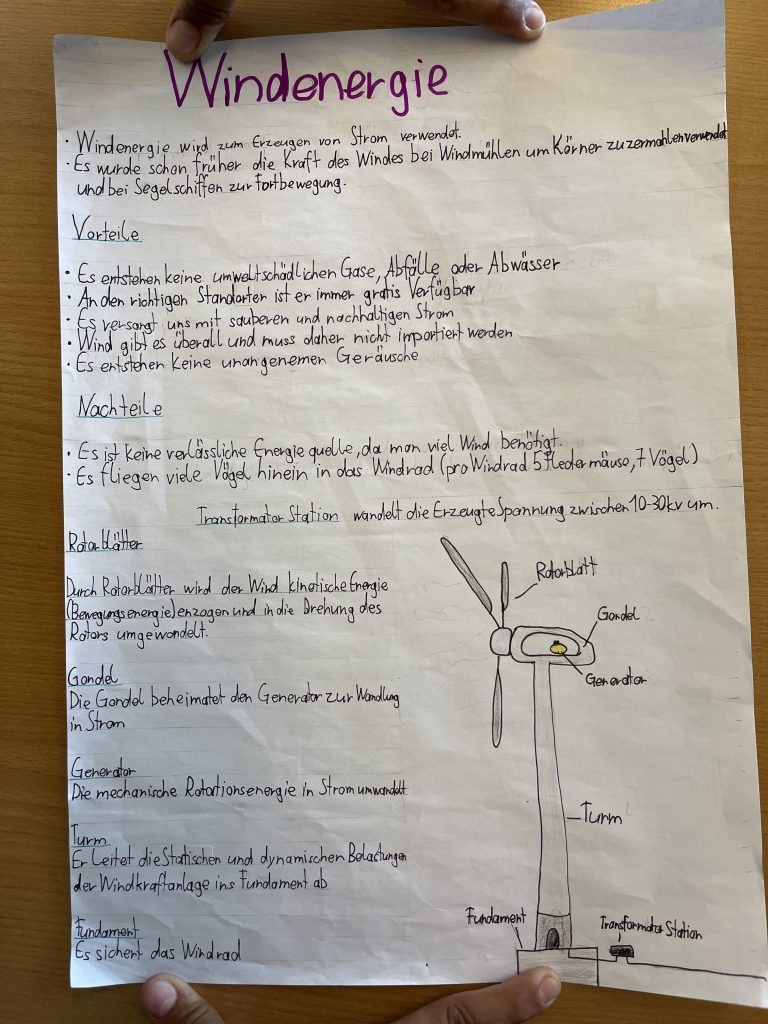 Windenergie
· Windenergie wird zum Erzeugen von Strom verwendet.
· Es wurde schon früher die Kraft des Windes bei Windmühlen um Körner zu zermahlen verwendet
und bei Segelschiffen zur Fortbewegung.
Vorteile
· Es entstehen keine umweltschädlichen Gase, Abfälle oder Abwässer
· An den richtigen Standorten ist er immer gratis Verfügbar
· Es versorgt uns mit sauberen und nachhaltigen Strom
· Wind gibt es überall und muss daher nicht importiert werden
· Es entstehen Keine unangenemen Geräusche
Nachteile
· Es ist keine verlässliche Energie quelle, da man viel Wind benötigt.
· Es fliegen viele Vögel hinein in das Windrad (pro Windrad 5 Fledermäuse, 7 Vögel)
Transformator Station wandelt die Erzeugte Spannung zwischen 10-30kv um.
Rotorblätter
Durch Rotorblätter wird der Wind kinetische Energie
(Bewegungsenergie) enzogen und in die Drehung des
Rotors umgewandelt.
Gondel
Die Gondel beheimatet den Generator zur Wandlung
in Strom
Generator
Die mechanische Rotartionsenergie in Strom umwandelt
Turm
Er Leitet die Statischen und dynamischen Belastungen
der Windkraftanlage ins Fundament ab
Fundament
Es sichert das Windrad
Rotorblatt
Gondel
Generator
Turm
Fundament
Transformator Station